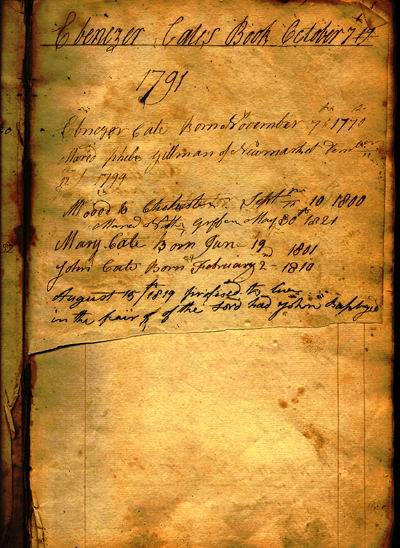 Ebenezer Cates Book October 7th
1791
Ebenezer Cate Born November 7th 1770
Mared phebe Gillman of Newmarket
1799
Moved to Chichester Sept 10 1800
Mared May 30th 1821
Mary Cate Born Jan 19 1801
John Cate Born February 2nd 1810
August 15th 1819 profised to live
in the fair of of the Lord had John Baptized